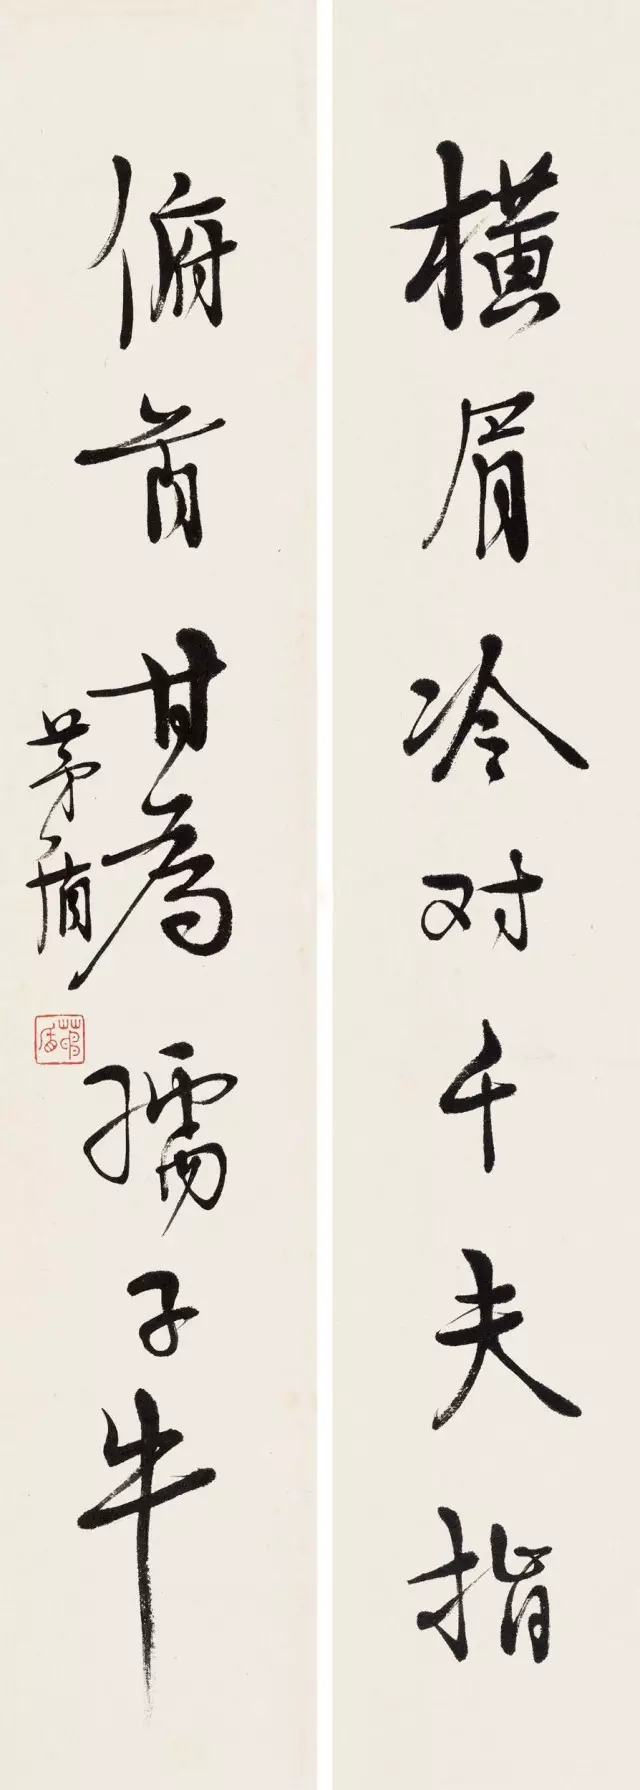 横眉冷对千夫指
俯首甘为孺子牛
茅盾
茅盾